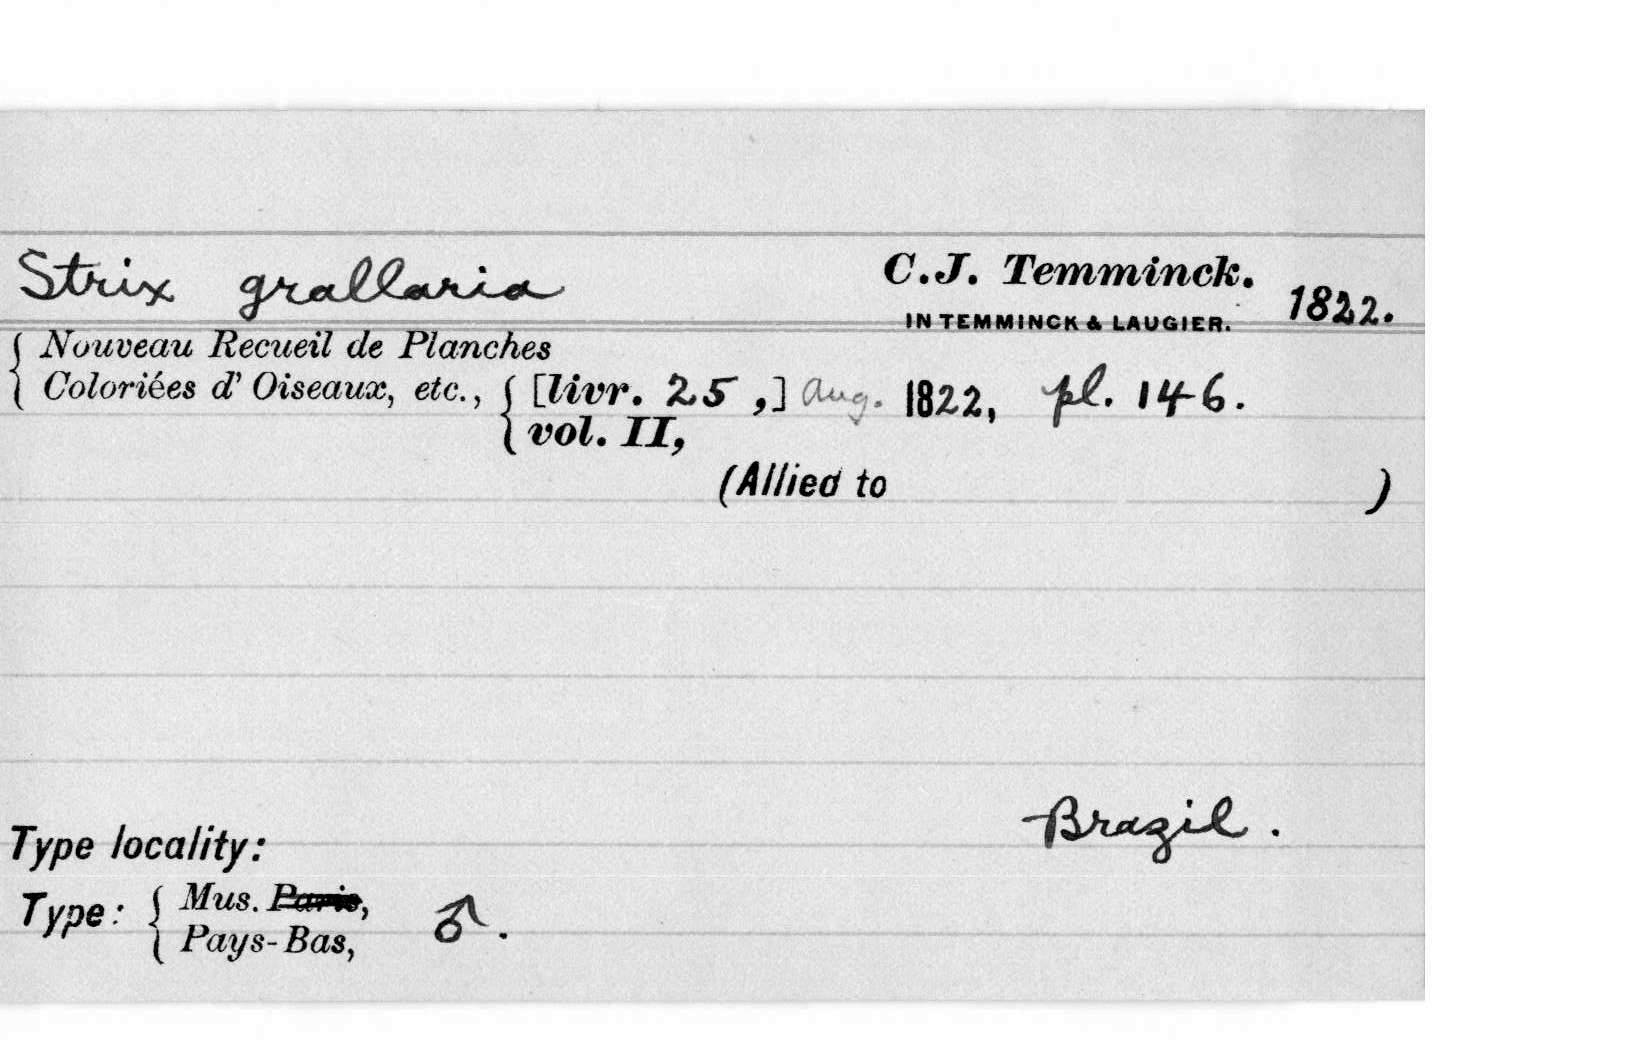 Strix grallaria C.J. Temminck. 1822.
IN TEMMINCK & LAUGIER.
Nouveau Recueil de Planches
Coloriées d' Oiseaux, etc., [livr. 25 ,] Aug. 1822, pl. 146.
vol. II,
(Allied to )
Brazil.
Type locality:
Type: Mus. Paris, ♂.
Pays-Bas,